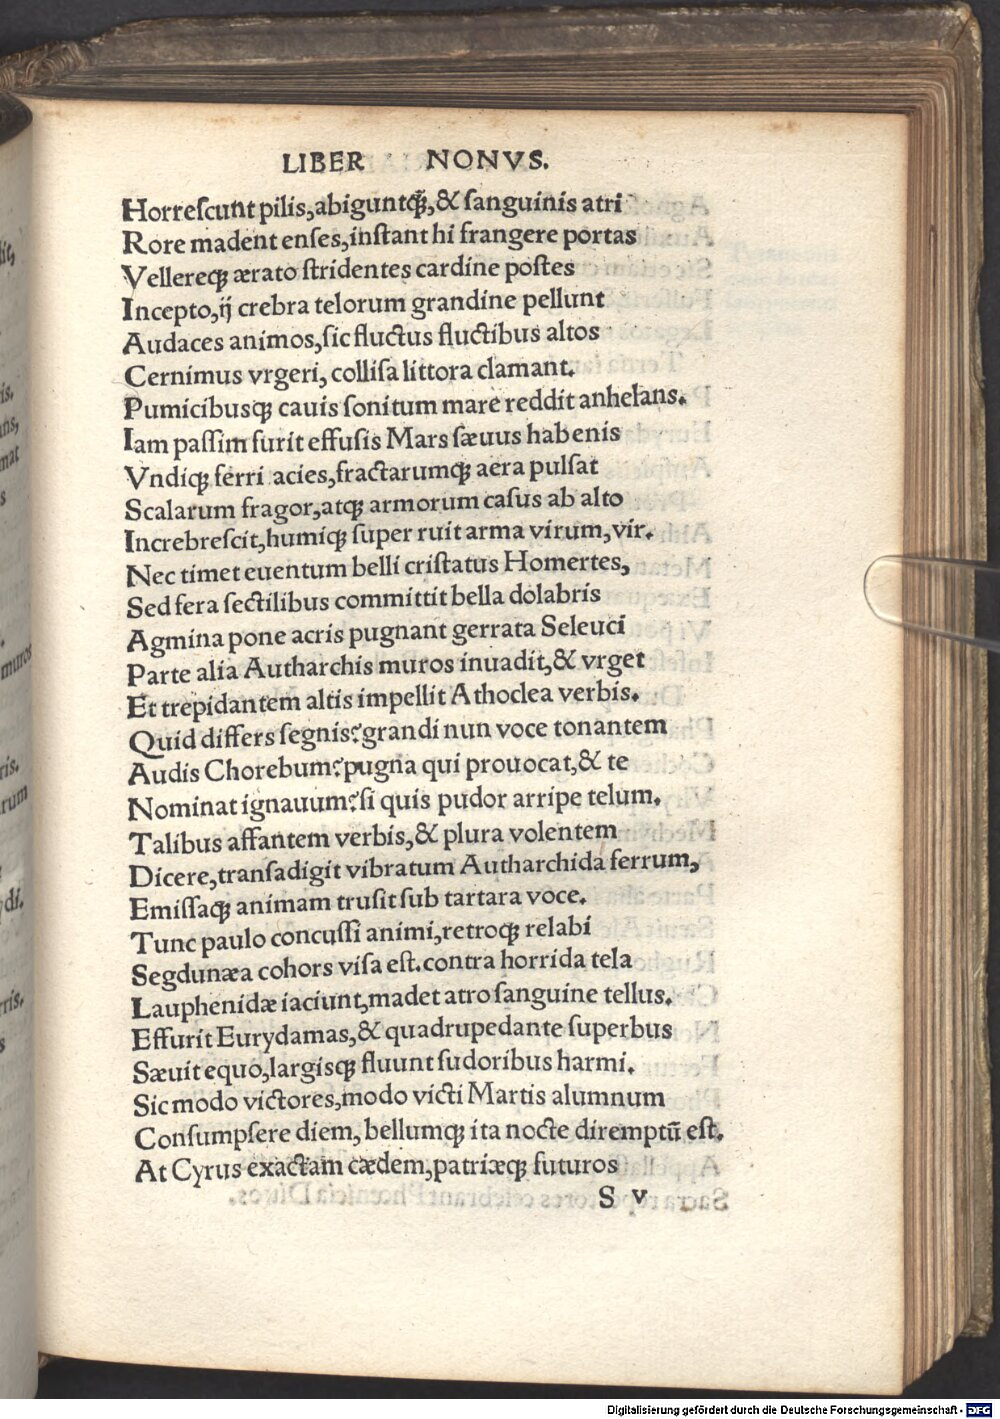 LIBER NONVS.
Horrescunt pilis, abiguntq̃, & sanguinis atri
Rore madent enses, instant hi frangere portas
Vellereq; ærato stridentes cardine postes
Incepto, ij crebra telorum grandine pellunt
Audaces animos, sic fluctus fluctibus altos
Cernimus vrgeri, collisa littora clamant.
Pumicibusq; cauis sonitum mare reddit anhelans.
Iam passim furit effusis Mars sæuus habenis
Vndiq; ferri acies, fractarumq; aera pulsat
Scalarum fragor, atq; armorum casus ab alto
Increbrescit, humiq; super ruit arma virum, vir.
Nec timet euentum belli cristatus Homertes,
Sed fera sectilibus committit bella dolabris
Agmina pone acris pugnant gerrata Seleuci
Parte alia Autharchis muros inuadit, & vrget
Et trepidantem altis impellit Athoclea verbis.
Quid differs segnis? grandi nun voce tonantem
Audis Chorebum? pugna qui prouocat, & te
Nominat ignauum? si quis pudor arripe telum.
Talibus affantem verbis, & plura volentem
Dicere, transadigit vibratum Autharchida ferrum,
Emissaq; animam trusit sub tartara voce.
Tunc paulo concussi animi, retroq; relabi
Segdunæa cohors visa est. contra horrida tela
Lauphenidæ iaciunt, madet atro sanguine tellus.
Effurit Eurydamas, & quadrupedante superbus
Sæuit equo, largisq; fluunt sudoribus harmi.
Sic modo victores, modo victi Martis alumnum
Consumpsere diem, bellumq; ita nocte diremptū est.
At Cyrus exactam cædem, patriæq; futuros
S v
Digitalisierung gefördert durch die Deutsche Forschungsgemeinschaft - DFG